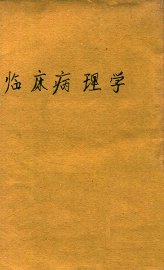 临床病理学